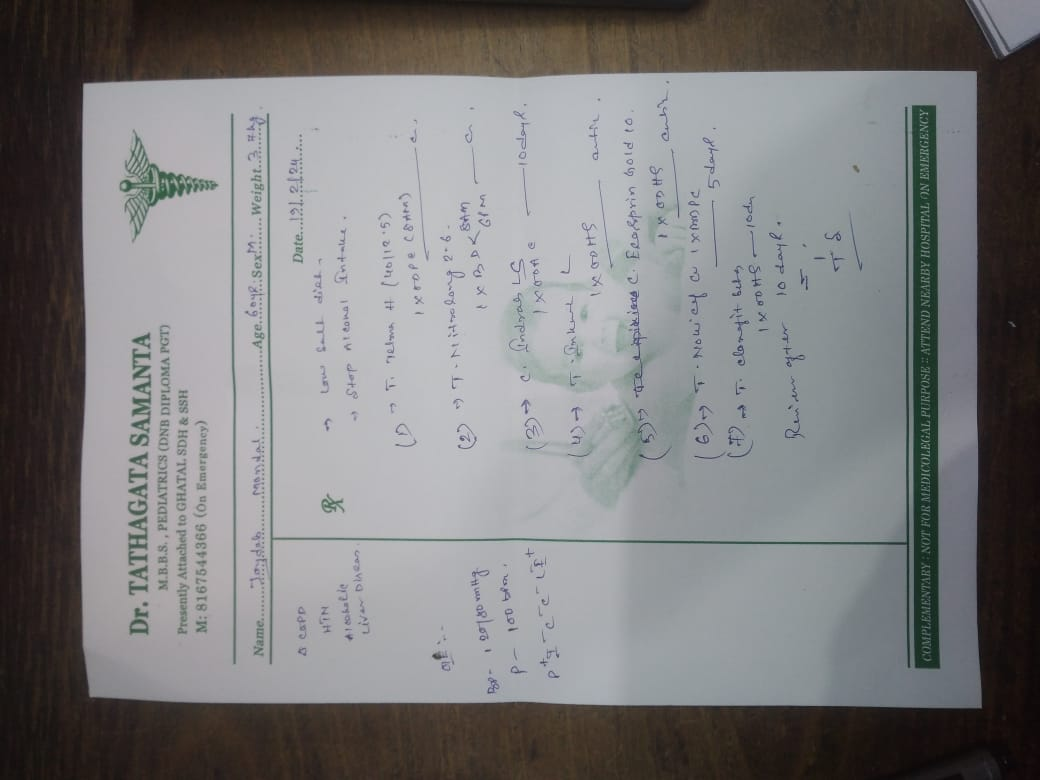 Dr. TATHAGATA SAMANTA
M.B.B.S., PEDIATRICS (DNB DIPLOMA PGT)
Presently Attached to GHATAL SDH & SSH
M: 8167544366 (On Emergency)
Name Joydeb Mondal Age 60yr Sex M Weight
Date 13/2/24
COPD
HTN
Alcoholic
Liver Disease.
O/E :-
BP - 120/80 mmHg
P - 100 bpm.
→ Low Salt diet
→ Stop Alcohol Intake.
(1) → T. Telma H (40/12.5)
1 x OD PC (8AM)
(2) → T. Nitrolong 2.6.
1 x BD 8AM
6PM
(3) → C. LS
1 x OD AC 10 days.
(4) → T. L
1 x OD HS
(5) → C. Ecosprin Gold 10.
1 x OD HS
(6) → T. 1 x PC
5 days.
(7) → T.
1 x OD HS 10 days
Review after 10 days.
T S
COMPLEMENTARY : NOT FOR MEDICOLEGAL PURPOSE :: ATTEND NEARBY HOSPITAL ON EMERGENCY